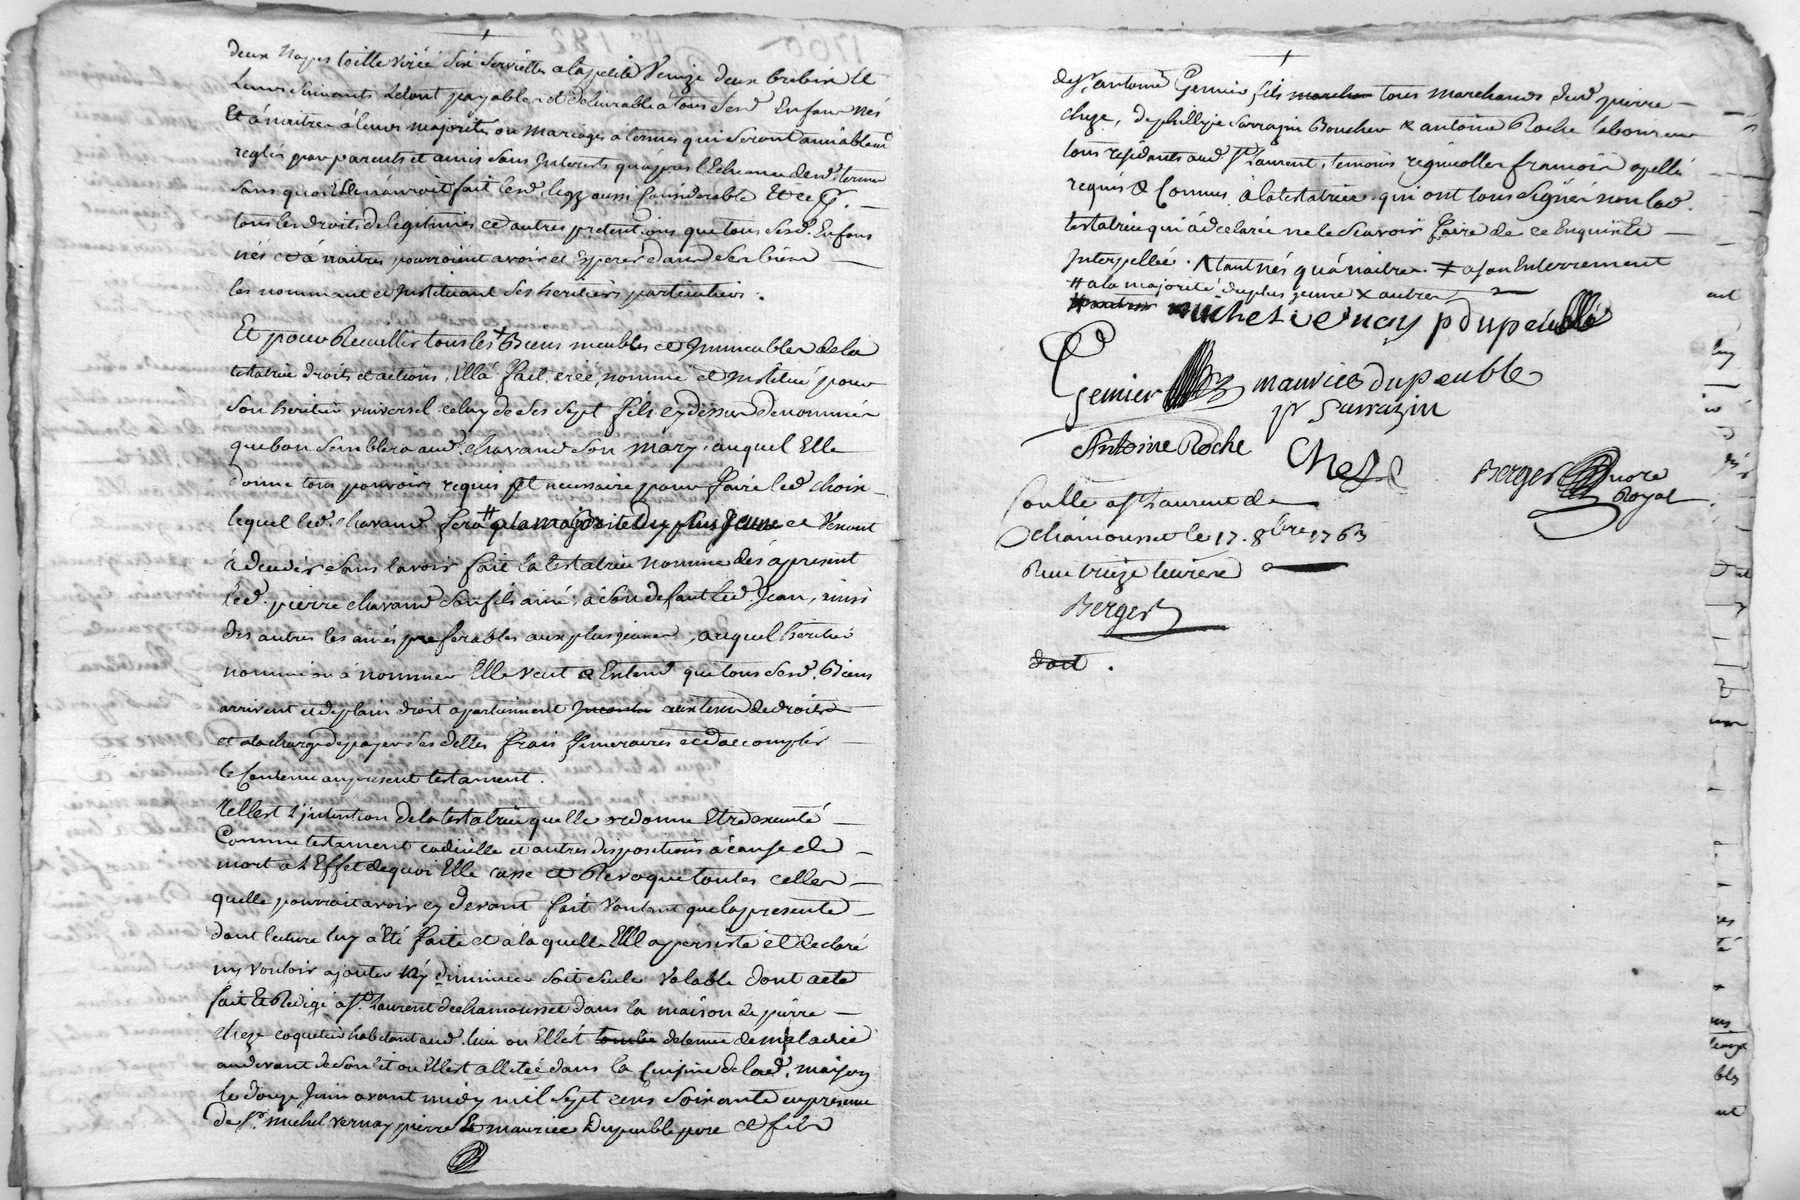 deux nappes toille virée six serviettes a la petite Venize deux brebis et
leurs suivants Ledout payables et délivrable a tous sesd. Enfans nés
Et à naitre à leurs majorités ou mariages a termes qui seront amiablemt
reglés par parents et amis sans Interests qu'apres l'Echeance desd. termes
sans quoi Elle n'auroit fait lesd. legz aussi Considerable Et ce p.
tous les droits de legitimes et autres pretentions que tous sesd. Enfans
nés et à naitres pourroient avoir et Esperer dans ses biens
les nommant et Instituant ses heritiers particuliers.
Et pour Recuillir tous les Biens meubles et Immeubles de la
testatrice droits et actions, Ell'a fait, créé, nommé et Institué pour
son heritier universel celuy de ses sept fils cy dessus denommés
que bon semblera aud. chavand son mary, auquel Elle
donne tous pouvoirs requis et necessaire pour faire led. choix
lequel led. chavand fera # a la majorité du plus Jeune et Venant
à deceder sans l'avoir fait la testatrice nomme dès apresent
led. pierre chavand son fils ainé, a son defaut led. Jean, ainsi
des autres les ainés preferables aux plus jeunes, auquel heritier
nommé ou à nommer Elle veut & Entend que tous sesd. Biens
arrivent et de plain droit apartiennent aux termes de droits
et a la charge de payer ses dettes frais funeraires et d'accomplir
le Contenu au present testament.
Tell'est l'intention de la testatrice qu'elle ordonne Etre executé
Comme testament codicille et autres dispositions à cause de
mort a l'Effet de quoi Elle casse et Revoque toutes celles
qu'elle pourroit avoir cy devant fait Voulant que la presente
dont lecture luy à été faite et à laquelle Ell'a persisté et declaré
ny vouloir ajouter ny diminuer soit seule valable dont acte
fait Et Redigé a St. Laurent de chamousset dans la maison de pierre
cheze coquetier habitant aud. lieu ou Ell'est tombée detenue de maladie
au devant de son lit ou Ell'est allitée dans la Cuisine de lad. maison
le douze Juin avant midy mil sept cens soixante en presence
de Sr. michel vernay pierre & maurice Dupeuble pere et fils
de Sr. antoine Gemier fils march tous marchands dud. pierre
cheze, de phillipe Sarrazin Boucher & antoine Roche laboureur
tous residants aud. St. Laurent, temoins regnicolles francois apellés
requis & Connus à la testatrice qui ont tous signés non lad.
testatrice qui à déclarée ne le sçavoir faire de ce Enquise Et
Interpellée. ^ tant nés qu'à naitre. ≠ a son Enterrement
# a la majorité du plus jeune & autres
michel vernay p dupeublé
Gemier maurice dupeuble
pr Sarrazin
Antoine Roche Cheze Berger nore
Royal
Conllé a St. Laurent de
chamousset le 17. 8bre 1763
Reçu treize livres
Berger
doit.